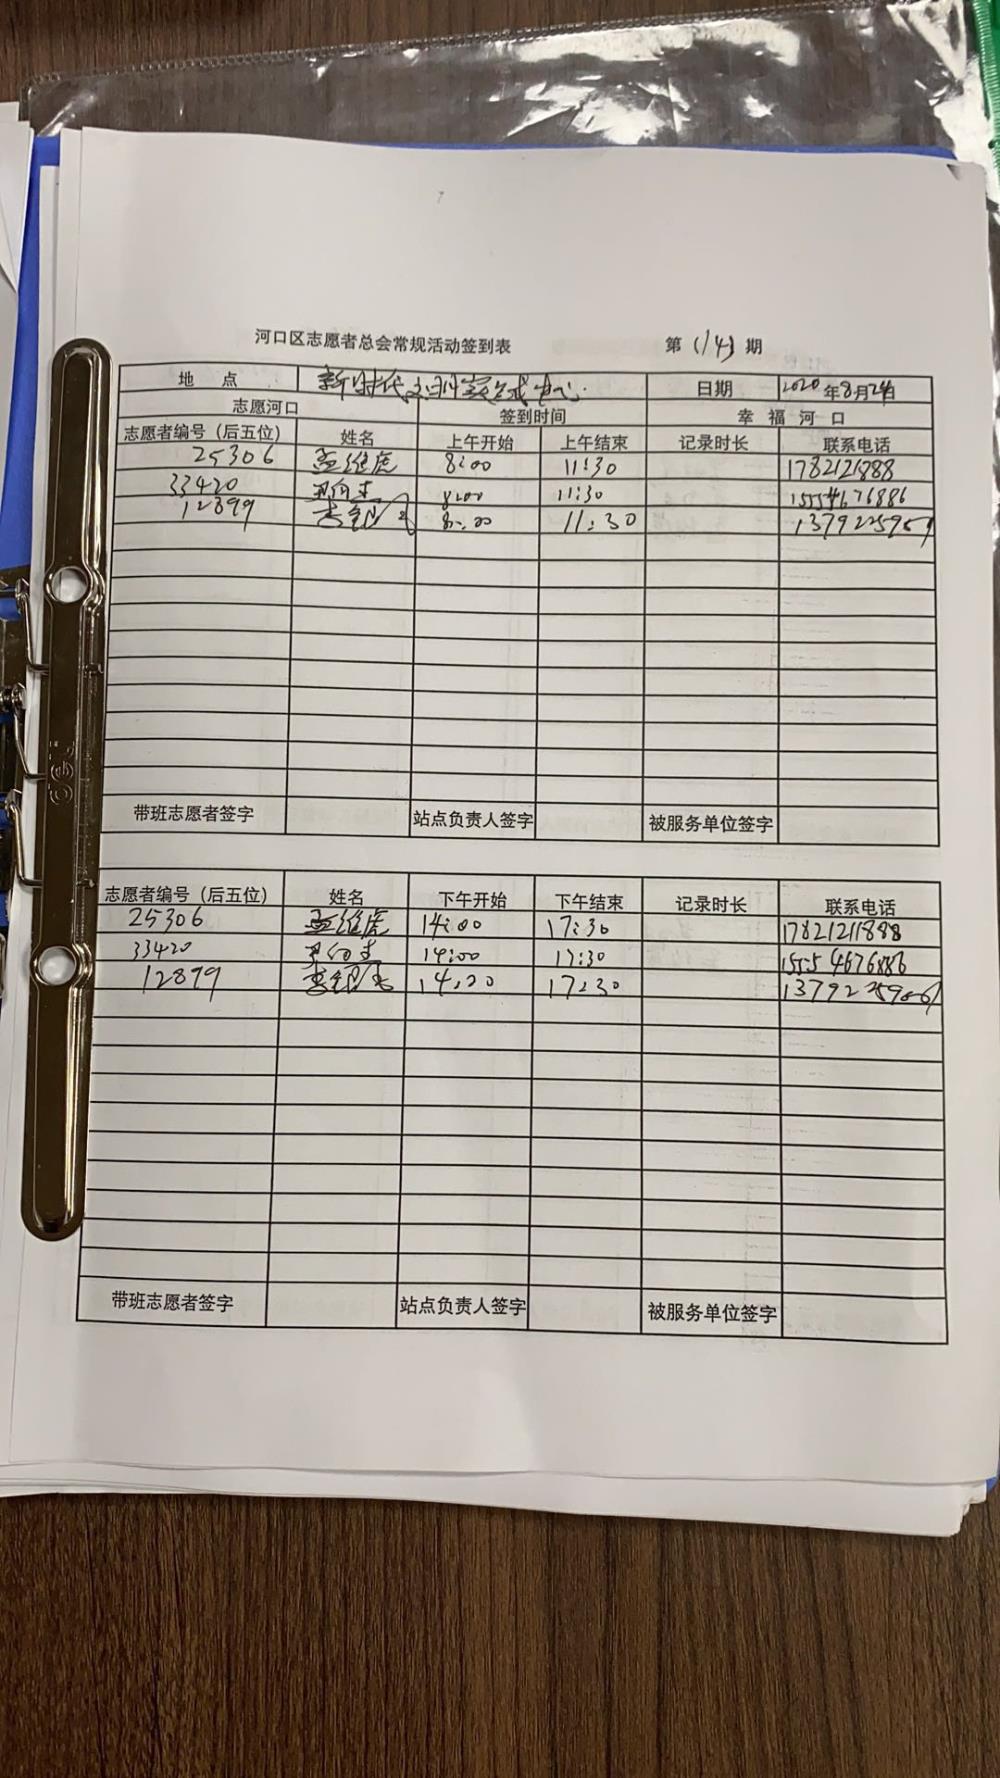 河口区志愿者总会常规活动签到表 第（143）期
地 点 新时代文明实践中心 日期 2020年8月24日
志愿河口 签到时间 幸 福 河 口
志愿者编号（后五位） 姓名 上午开始 上午结束 记录时长 联系电话
25306 孟维虎 8:00 11:30
33420 8:00 11:30 15554676886
12899 8:00 11:30
带班志愿者签字 站点负责人签字 被服务单位签字
志愿者编号（后五位） 姓名 下午开始 下午结束 记录时长 联系电话
25306 孟维虎 14:00 17:30 17821211888
33420 14:00 17:30 15554676886
12899 14:00 17:30
带班志愿者签字 站点负责人签字 被服务单位签字
deli